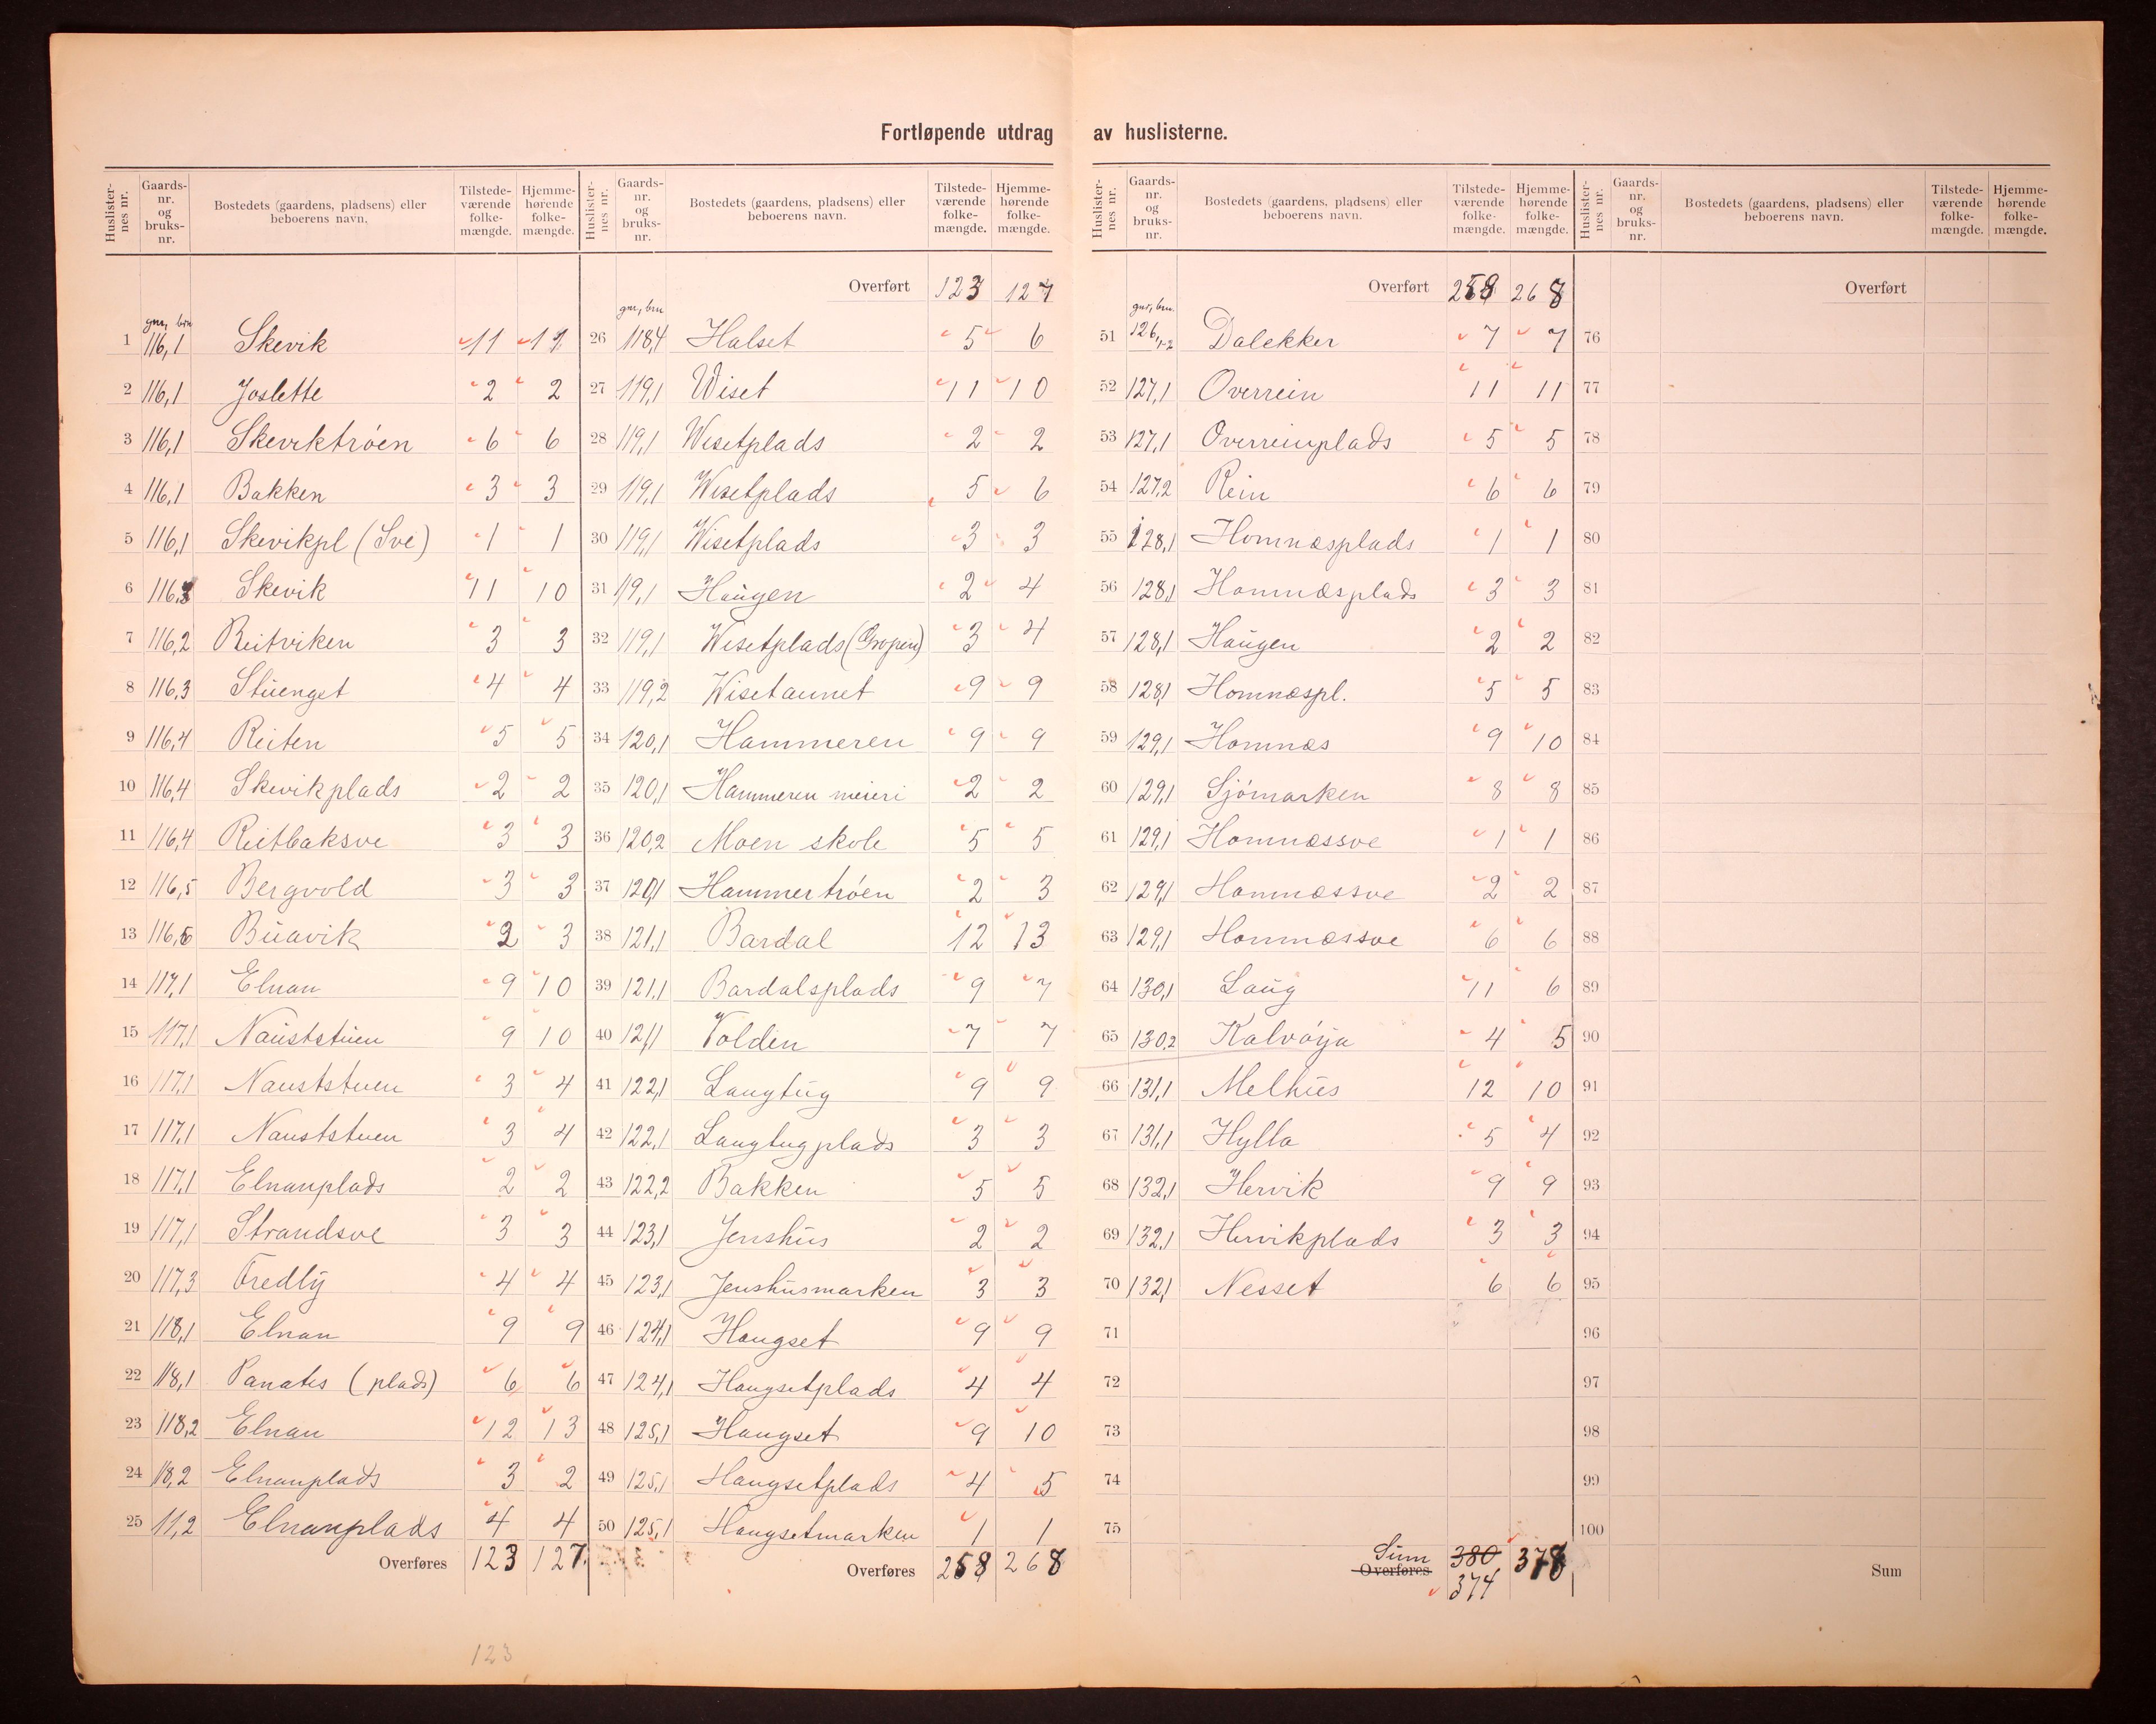 Fortløpende utdrag av huslisterne.
Huslisternes nr. Gaardsnr. og bruksnr. Bostedets (gaardens, pladsens) eller beboerens navn. Tilstedeværende folkemængde. Hjemmehørende folkemængde.
gnr, brn
1 116,1 Skevik 11 12
2 116,1 Joslette 2 2
3 116,1 Skeviktrøen 6 6
4 116,1 Bakken 3 3
5 116,1 Skevikpl (Sve) 1 1
6 116,3 Skevik 11 10
7 116,2 Reitviken 3 3
8 116,3 Stuenget 4 4
9 116,4 Reiten 5 5
10 116,4 Skevikplads 2 2
11 116,4 Reitbaksve 3 3
12 116,5 Bergvold 3 3
13 116,6 Buavik 2 3
14 117,1 Elnan 9 10
15 117,1 Nauststuen 9 10
16 117,1 Nauststuen 3 4
17 117,1 Nauststuen 3 4
18 117,1 Elnanplads 2 2
19 117,1 Strandsve 3 3
20 117,3 Fredly 4 4
21 118,1 Elnan 9 9
22 118,1 (plads) 6 6
23 118,2 Elnan 12 13
24 118,2 Elnanplads 3 2
25 11,2 Elnanplads 4 4
Overføres 123 127
123
Huslisternes nr. Gaardsnr. og bruksnr. Bostedets (gaardens, pladsens) eller beboerens navn. Tilstedeværende folkemængde. Hjemmehørende folkemængde.
Overført 123 127
gnr, brn
26 118,4 Halset 5 6
27 119,1 Wiset 11 10
28 119,1 Wisetplads 2 2
29 119,1 Wisetplads 5 6
30 119,1 Wisetplads 3 3
31 119,1 Haugen 2 4
32 119,1 Wisetplads (Gropen) 3 4
33 119,2 Wisetaunet 9 9
34 120,1 Hammeren 9 9
35 120,1 Hammeren meieri 2 2
36 120,2 Moen skole 5 5
37 120,1 Hammertrøen 2 3
38 121,1 Bardal 12 13
39 121,1 Bardalsplads 9 7
40 121,1 Volden 7 7
41 122,1 Langtug 9 9
42 122,1 Langtugplads 3 3
43 122,2 Bakken 5 5
44 123,1 Jenshus 2 2
45 123,1 Jenshusmarken 3 3
46 124,1 Haugset 9 9
47 124,1 Haugsetplads 4 4
48 125,1 Haugset 9 10
49 125,1 Haugsetplads 4 5
50 125,1 Haugsetmarken 1 1
Overføres 258 268
Huslisternes nr. Gaardsnr. og bruksnr. Bostedets (gaardens, pladsens) eller beboerens navn. Tilstedeværende folkemængde. Hjemmehørende folkemængde.
Overført 258 268
gnr, brn.
51 126,1-2 Dalekker 7 7
52 127,1 Overrein 11 11
53 127,1 Overreinplads 5 5
54 127,2 Rein 6 6
55 128,1 Homnæsplads 1 1
56 128,1 Homnæsplads 3 3
57 128,1 Haugen 2 2
58 128,1 Homnæspl. 5 5
59 129,1 Homnæs 9 10
60 129,1 Sjømarken 8 8
61 129,1 Homnæssve 1 1
62 129,1 Homnæssve 2 2
63 129,1 Homnæssve 6 6
64 130,1 Saug 11 6
65 130,2 Kalvøya 4 5
66 131,1 Melhus 12 10
67 131,1 Hylla 5 4
68 132,1 Hervik 9 9
69 132,1 Hervikplads 3 3
70 132,1 Nesset 6 6
71
72
73
74
75
Sum 380 378
Overføres 374
Huslisternes nr. Gaardsnr. og bruksnr. Bostedets (gaardens, pladsens) eller beboerens navn. Tilstedeværende folkemængde. Hjemmehørende folkemængde.
Overført
76
77
78
79
80
81
82
83
84
85
86
87
88
89
90
91
92
93
94
95
96
97
98
99
100
Sum